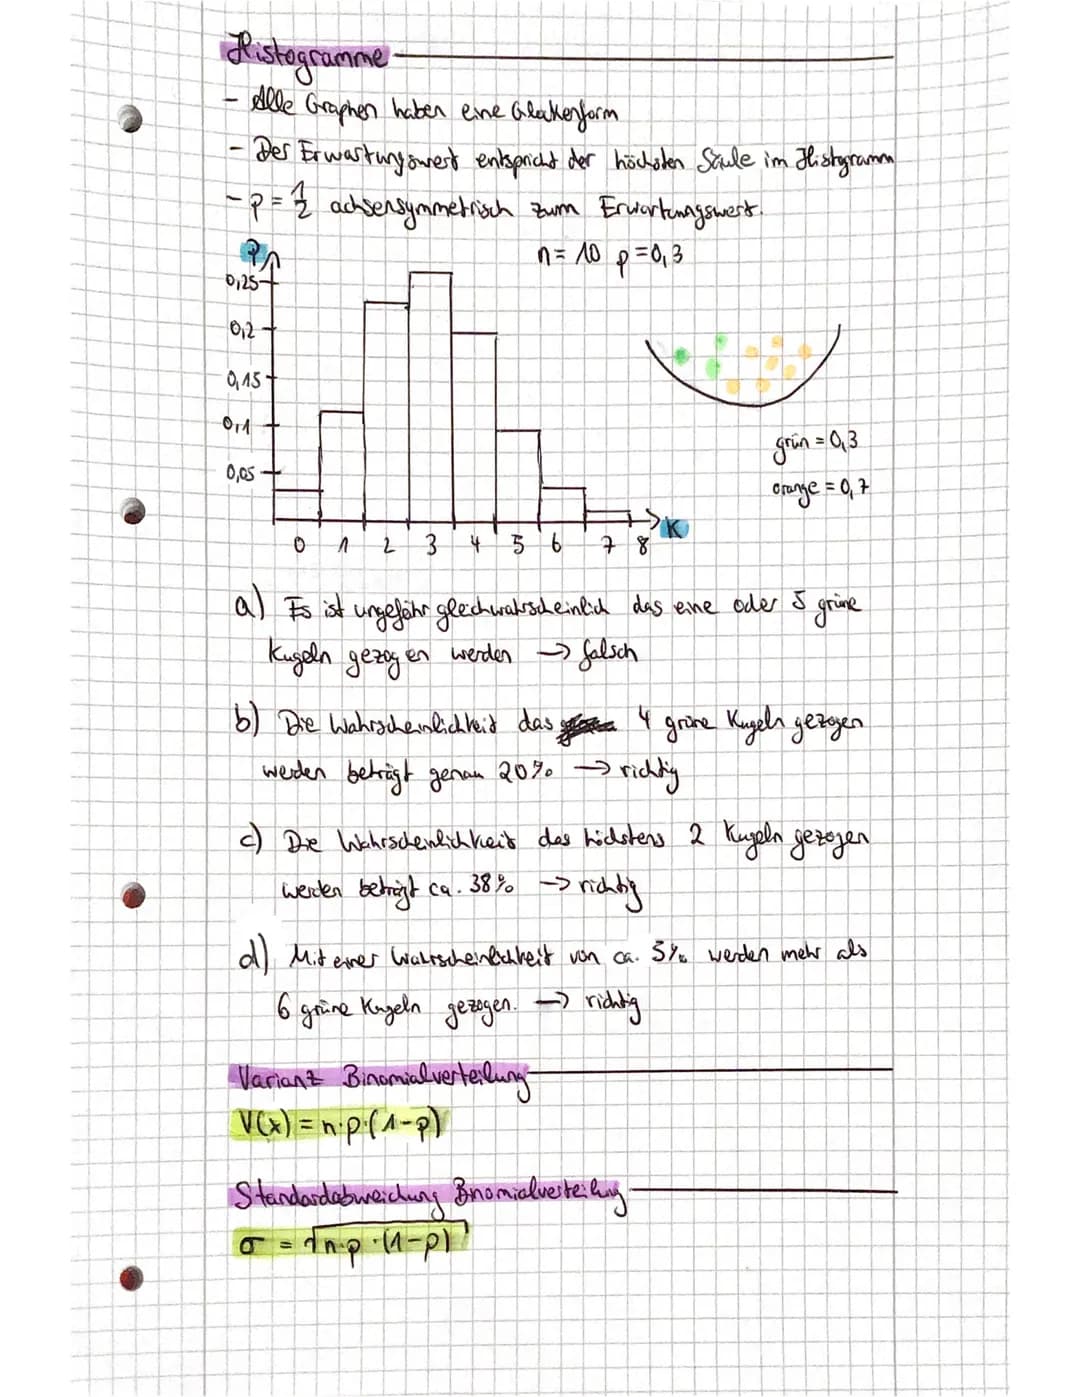 Histogramme
- Alle Graphen haben eine Glockenform
- Der Erwartungswert entspricht der höchsten Säule im Histogramm
- p = 1/2 achsensymmetrisch zum Erwartungswert.
P
n = 10 p = 0,3
0,25
0,2
0,15
0,1
0,05
grün = 0,3
orange = 0,7
K
0 1 2 3 4 5 6 7 8
a) Es ist ungefähr gleichwahrscheinlich das eine oder 5 grüne
Kugeln gezogen werden → falsch
b) Die Wahrscheinlichkeit das 4 grüne Kugeln gezogen
werden beträgt genau 20% → richtig
c) Die Wahrscheinlichkeit das höchstens 2 Kugeln gezogen
werden beträgt ca. 38% → richtig
d) Mit einer Wahrscheinlichkeit von ca. 5% werden mehr als
6 grüne Kugeln gezogen. → richtig
Varianz Binomialverteilung
V(x) = n·p·(1-p)
Standardabweichung Binomialverteilung
σ = √n·p·(1-p)